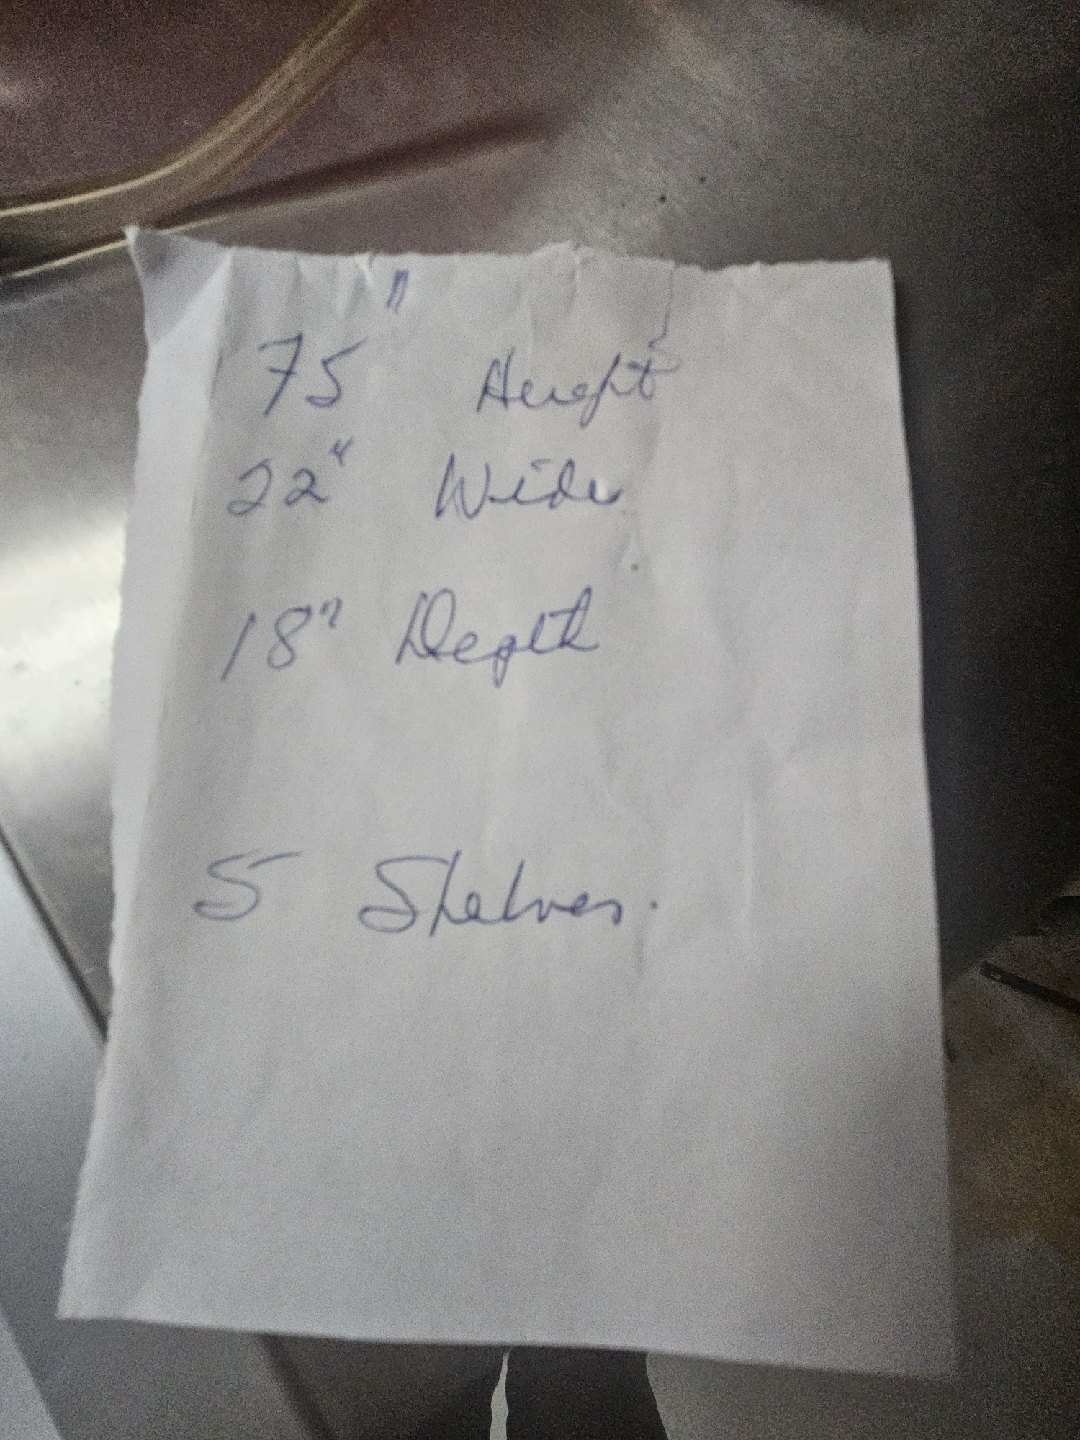 75" Height
22" Wide
18" Depth
5 Shelves.